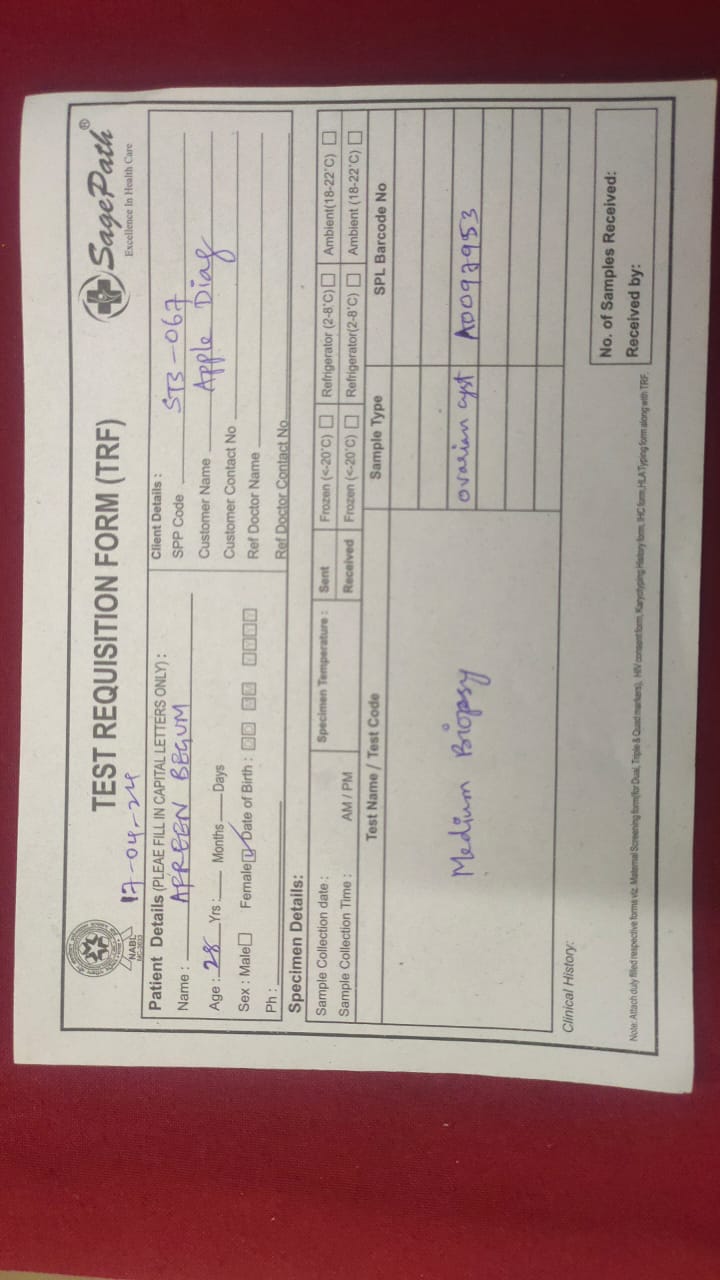 TEST REQUISITION FORM (TRF)
SagePath®
Excellence In Health Care
NABL
17-04-24
Patient Details (PLEAE FILL IN CAPITAL LETTERS ONLY) :
Name : AFREEN BEGUM
Age : 28 Yrs : Months Days
Sex : Male Female Date of Birth : D D M M Y Y Y Y
Ph :
Client Details :
SPP Code ST3-067
Customer Name Apple Diag
Customer Contact No
Ref Doctor Name
Ref Doctor Contact No
Specimen Details:
Sample Collection date : Specimen Temperature : Sent Frozen (<-20°C) Refrigerator (2-8°C) Ambient(18-22°C)
Sample Collection Time : AM / PM Received Frozen (<-20°C) Refrigerator(2-8°C) Ambient (18-22°C)
Test Name / Test Code Sample Type SPL Barcode No
Medium Biopsy ovarian cyst A0097953
Clinical History:
No. of Samples Received:
Received by:
Note: Attach duly filled respective forms viz. Maternal Screening form(for Dual, Triple & Quad markers), HIV consent form, Karyotyping History form, IHC form, HLA Typing form along with TRF.